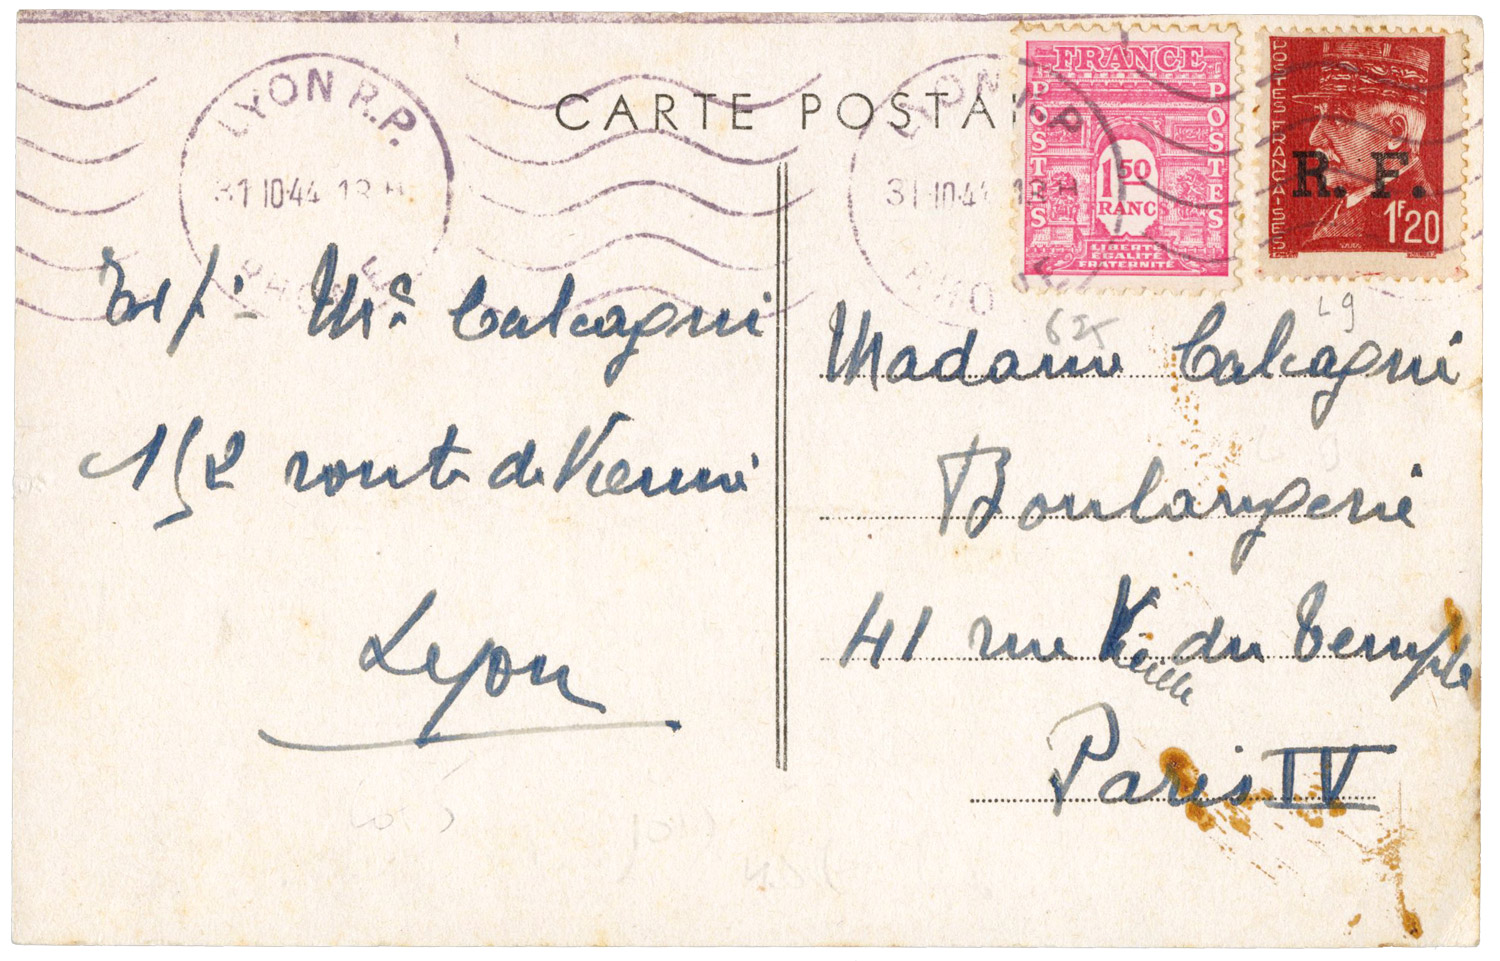 LYON R.P.
31 10-44 18 H
RHONE
CARTE POSTA
LYON R.P
31-10-44 18 H
RHO E
FRANCE
POSTES
POSTES
1 50
FRANC
LIBERTÉ
ÉGALITÉ
FRATERNITÉ
POSTES FRANÇAISES
R. F.
1F20
Mr Calcagni
152 route de Vienne
Lyon
625
29
Madame Calcagni
Boulangerie
41 rue Vieille du Temple
Paris IV